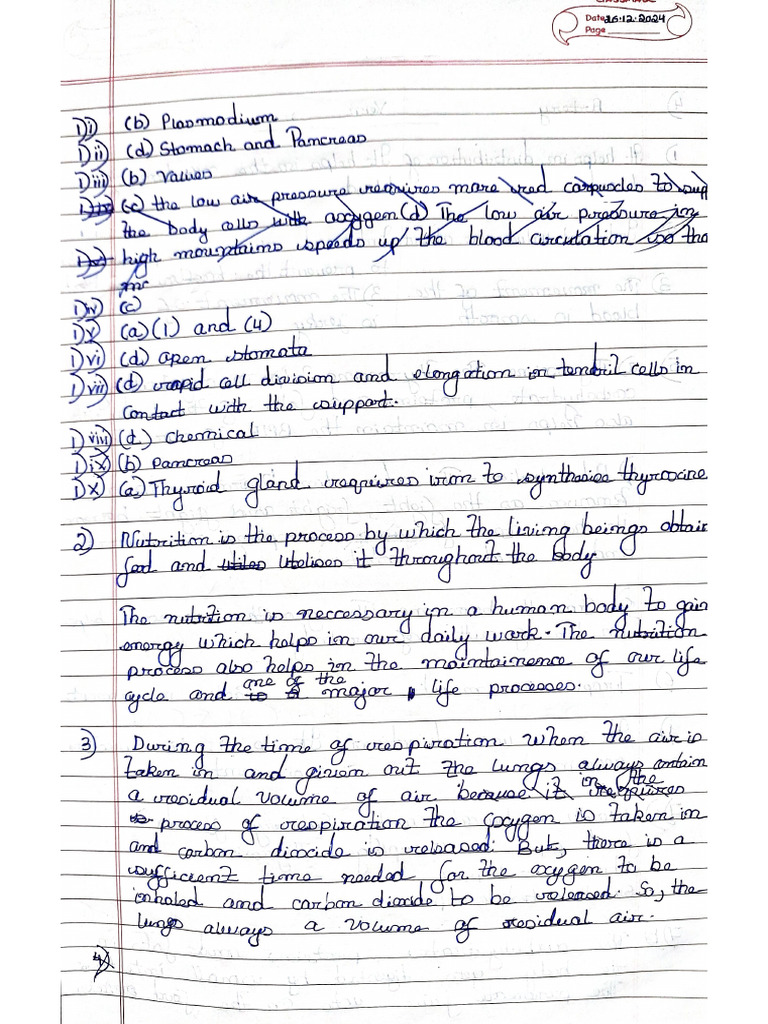 CLASSMATE
Date 26.12.2024
Page
1)i) (b) Plasmodium
1)ii) (d) Stomach and Pancreas
1)iii) (b) Values
1)iv) (c) the low air pressure requires more red carpuscles to supp
the body cells with aoxygen (d) The low air pressure in
1)v) high mountains speeds up the blood circulation so tha
1)iv) (c)
1)v) (a) (1) and (4)
1)vi) (d) open stomata
1)vii) (d) rapid cell division and elongation in tendril cells in
contact with the support.
1)viii) (d) chemical
1)ix) (b) pancreas
1)x) (a) Thyroid gland requires iron to synthesise thyroxine
2) Nutrition is the process by which the living beings obtain
food and utiles utelises it throughout the body
The nutrition is neccessary in a human body to gain
energy which helps in our daily work. The nutrition
process also helps in the maintainence of our life
cycle and one of the major life processes.
3) During the time of respiration when the air is
taken in and given out the lungs always contain
a residual volume of air because it requires in the
process of respiration the oxygen is taken in
and carbon dioxide is released. But, there is a
sufficient time needed for the oxygen to be
inhaled and carbon dioxide to be released. So, the
lungs always a volume of residual air.
4)